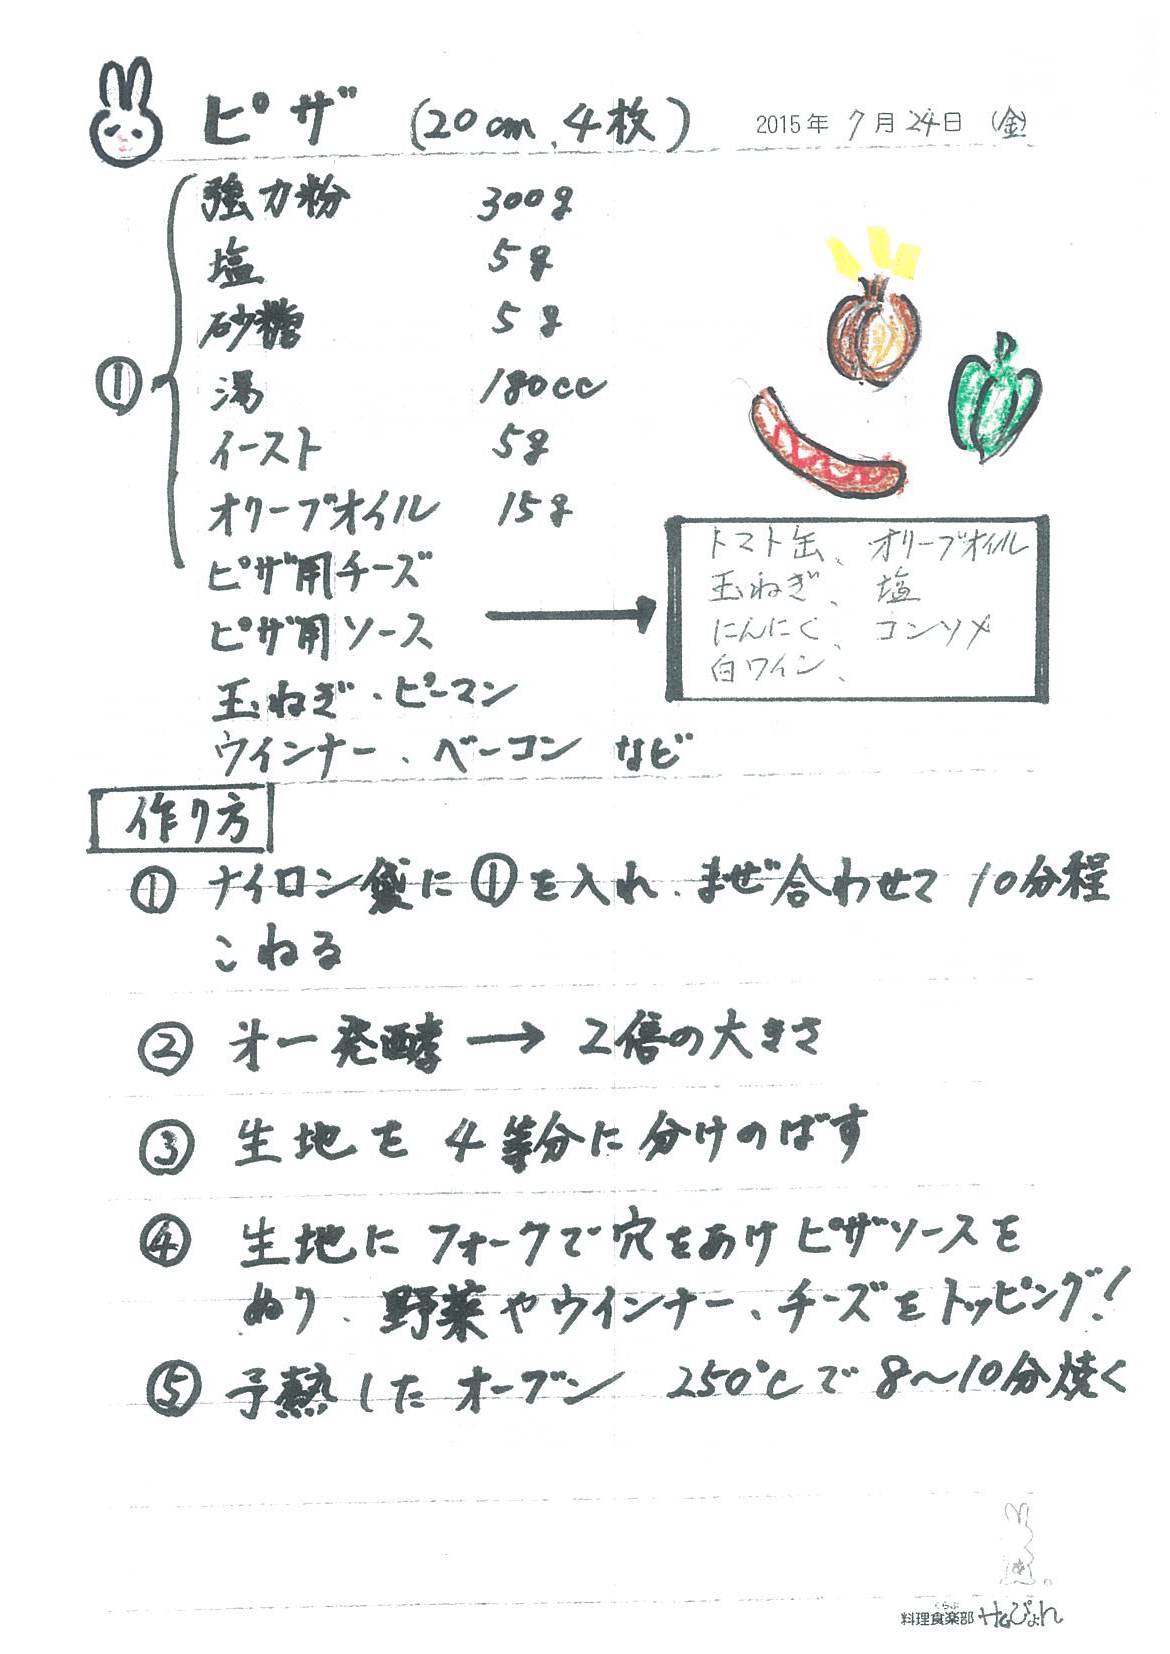 ピザ (20cm、4枚) 2015年 7月 24日 (金)
強力粉 300g
塩 5g
砂糖 5g
①
湯 180cc
イースト 5g
オリーブオイル 15g
ピザ用チーズ
ピザ用ソース
玉ねぎ・ピーマン
ウインナー、ベーコン など
トマト缶、オリーブオイル
玉ねぎ、塩
にんにく、コンソメ
白ワイン、
作り方
① ナイロン袋に①を入れ、まぜ合わせて 10分程
こねる
② 才一発酵 → 2倍の大きさ
③ 生地を 4等分に分けのばす
④ 生地にフォークで穴をあけピザソースを
ぬり、野菜やウインナー、チーズをトッピング!
⑤ 予熱したオーブン 250℃で 8〜10分焼く
くらぶ
料理食楽部